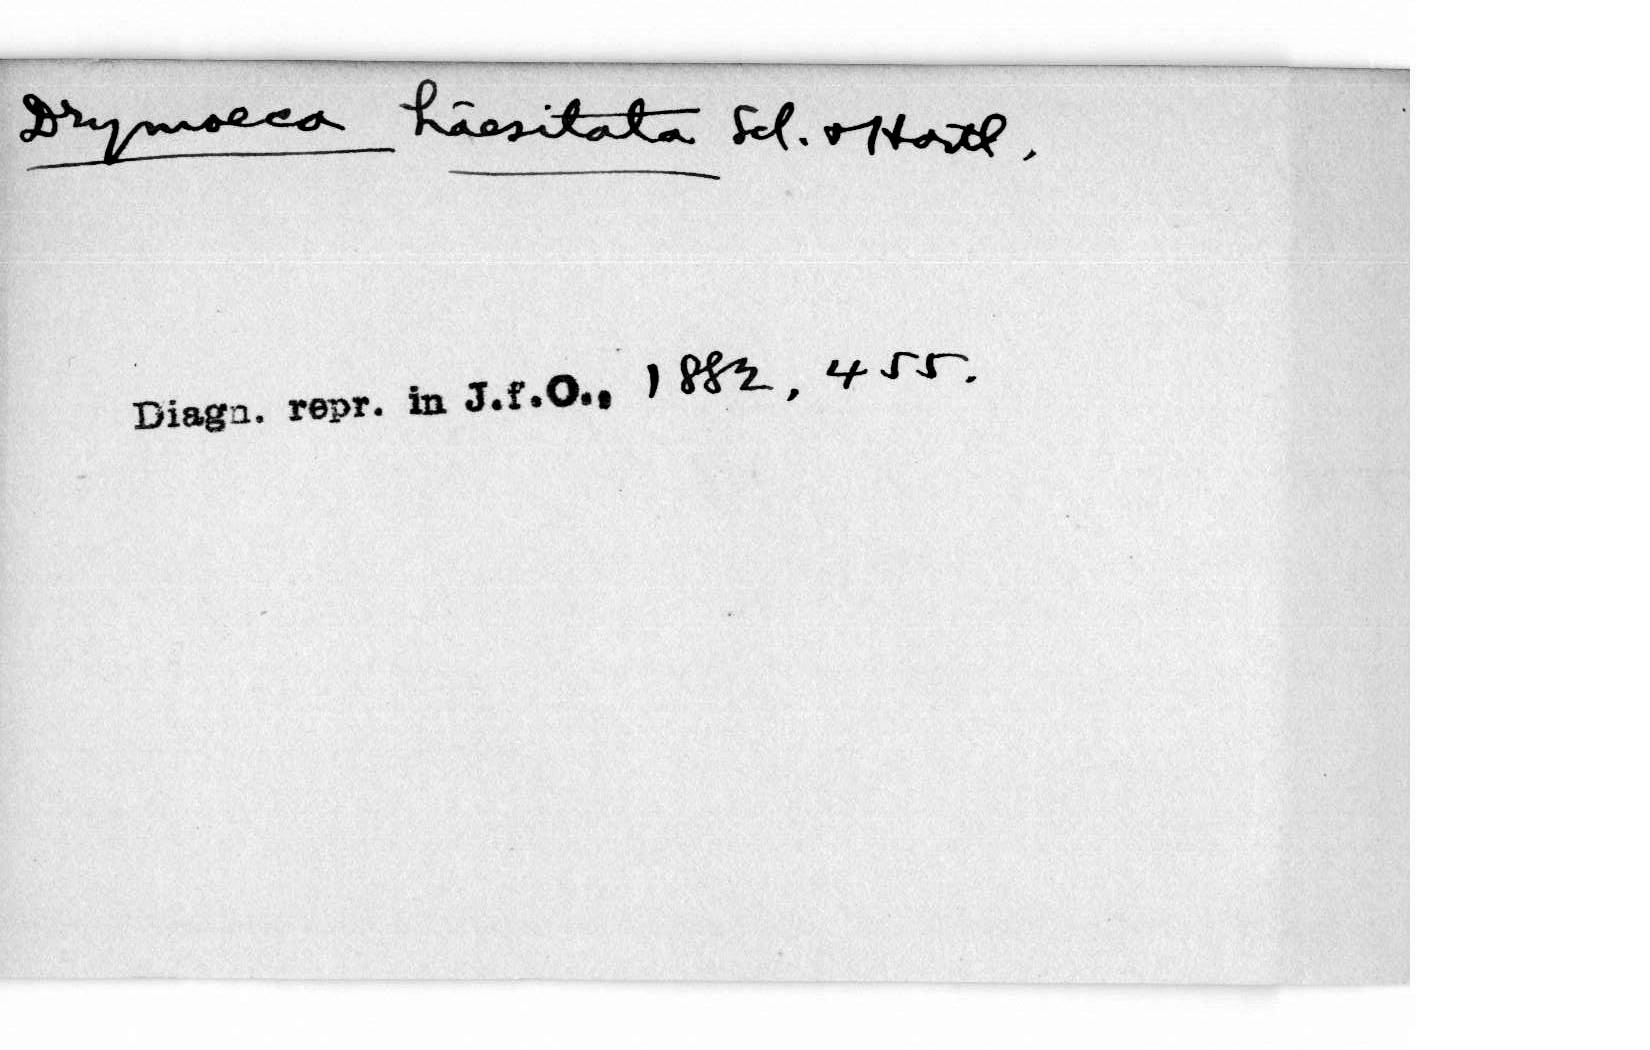 Drymoeca haesitata Scl. & Hartl.
Diagn. repr. in J.f.O., 1882, 455.